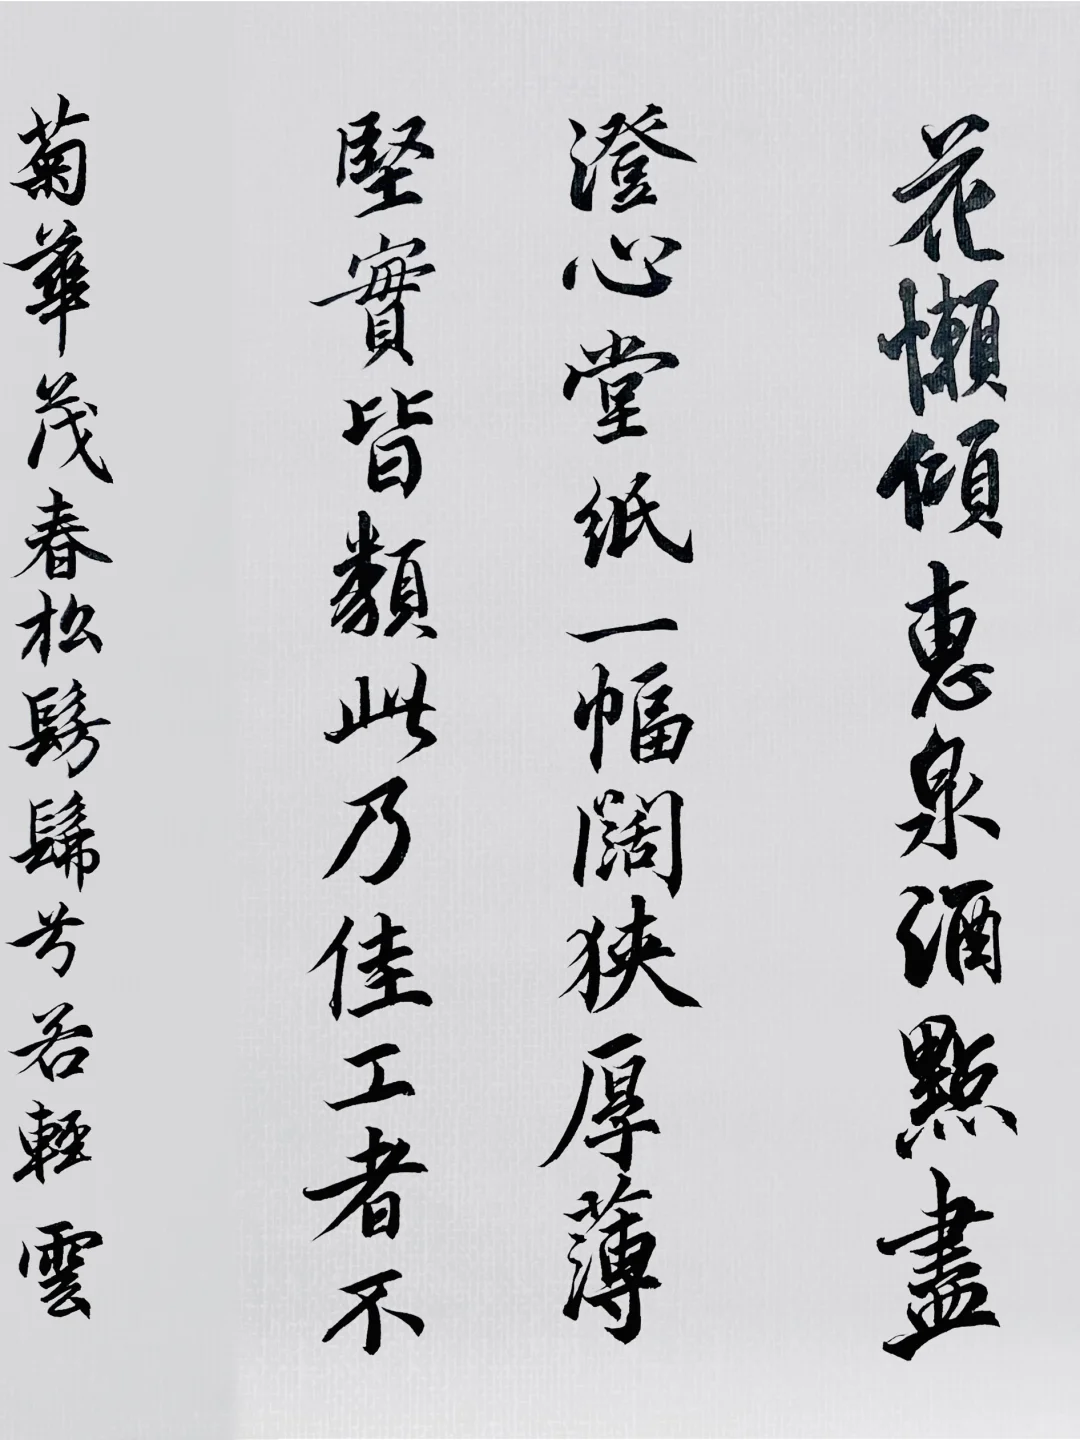 花懶傾惠泉酒點盡
澄心堂紙一幅闊狹厚薄
堅實皆類此乃佳工者不
菊華茂春松髣髴兮若輕雲